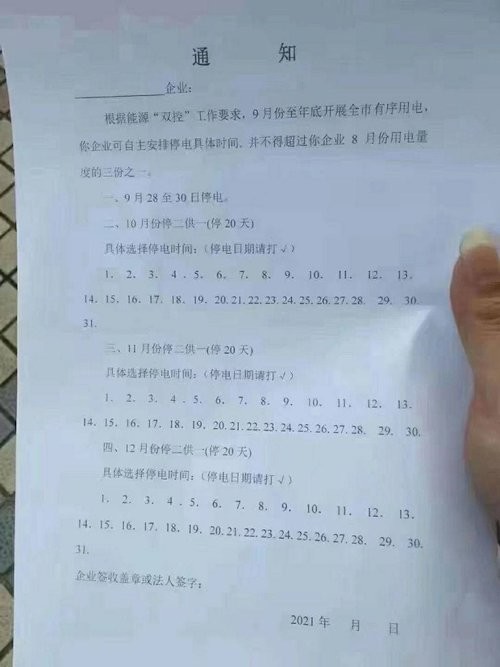 通 知
企业:
根据能源“双控”工作要求,9月份至年底开展全市有序用电,
你企业可自主安排停电具体时间,并不得超过你企业 8 月份用电量
度的三份之一。
一、9月28至30日停电。
二、10月份停二供一(停20天)
具体选择停电时间:(停电日期请打√)
1. 2. 3. 4. 5. 6. 7. 8. 9. 10. 11. 12. 13.
14. 15. 16. 17. 18. 19. 20. 21. 22. 23. 24. 25. 26. 27. 28. 29. 30.
31.
三、11月份停二供一(停20天)
具体选择停电时间:(停电日期请打√)
1. 2. 3. 4. 5. 6. 7. 8. 9. 10. 11. 12. 13.
14. 15. 16. 17. 18. 19. 20. 21. 22. 23. 24. 25. 26. 27. 28. 29. 30.
四、12月份停二供一(停20天)
具体选择停电时间:(停电日期请打√)
1. 2. 3. 4. 5. 6. 7. 8. 9. 10. 11. 12. 13.
14. 15. 16. 17. 18. 19. 20. 21. 22. 23. 24. 25. 26. 27. 28. 29. 30.
31.
企业签收盖章或法人签字:
2021年 月 日